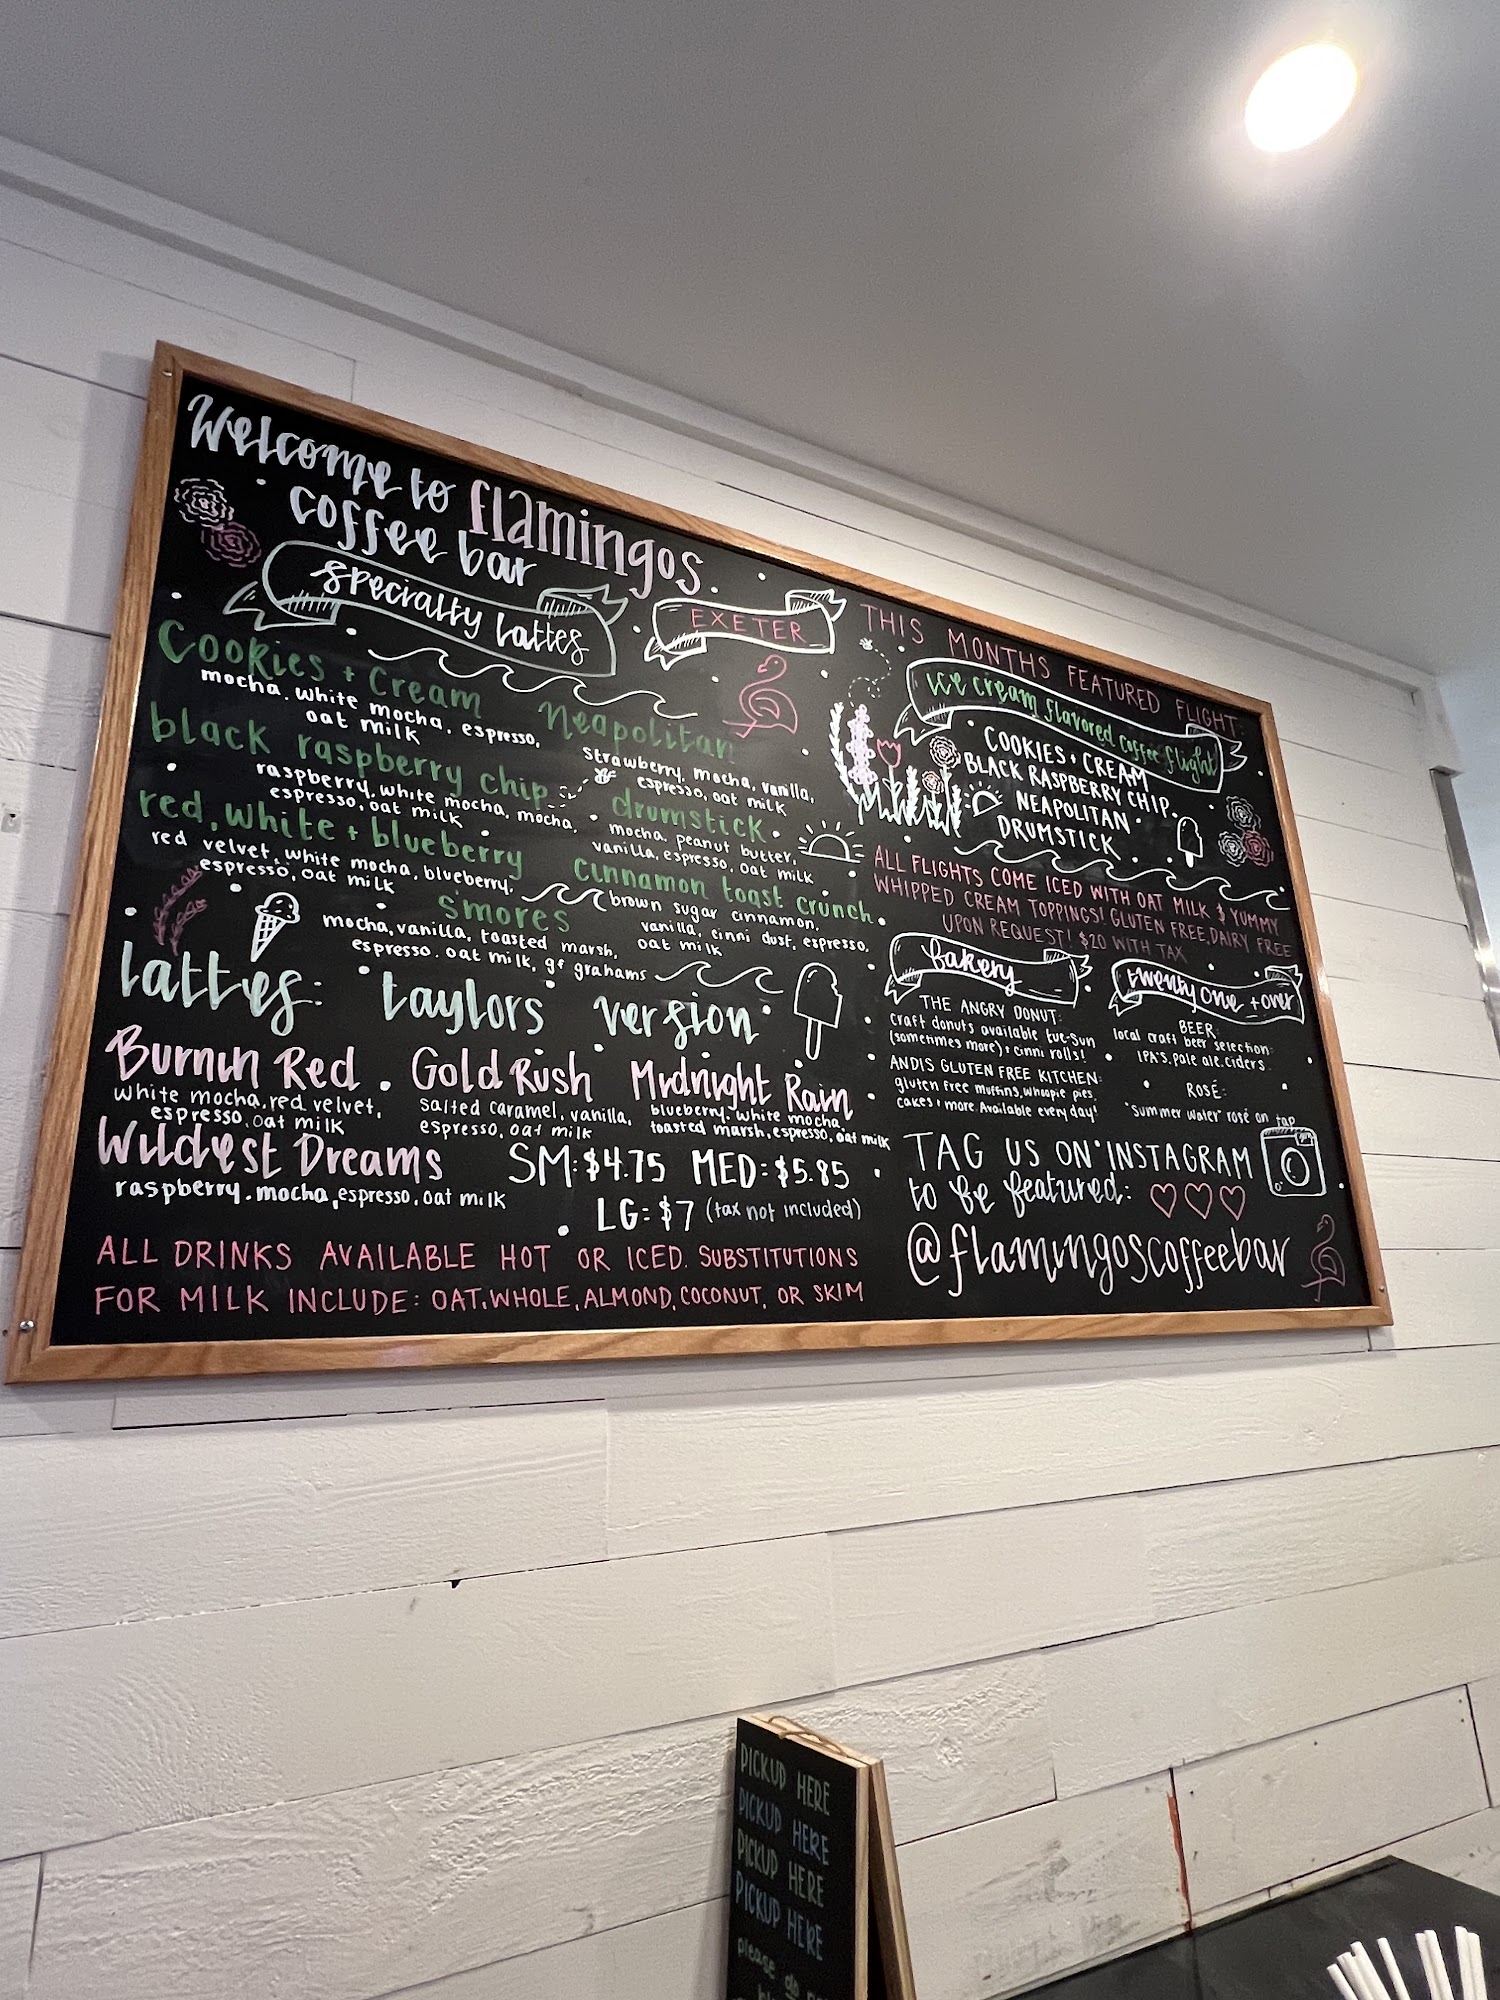 Welcome to flamingos
coffee bar
EXETER
specialty lattes
Cookies + Cream
mocha, white mocha, espresso,
oat milk
black raspberry chip
raspberry, white mocha, mocha,
espresso, oat milk
red, white + blueberry
red velvet, white mocha, blueberry,
espresso, oat milk
Neapolitan
Strawberry, mocha, vanilla,
espresso, oat milk
drumstick
mocha, peanut butter,
vanilla, espresso, oat milk
cinnamon toast crunch
brown sugar cinnamon,
vanilla, cinni dust, espresso,
oat milk
smores
mocha, vanilla, toasted marsh,
espresso, oat milk, gf grahams
lattes: taylors version
Burnin Red
white mocha, red velvet,
espresso, oat milk
Gold Rush
salted caramel, vanilla,
espresso, oat milk
Midnight Rain
blueberry, white mocha,
toasted marsh, espresso, oat milk
Wildest Dreams
raspberry, mocha, espresso, oat milk
SM: $4.75 MED: $5.85
LG: $7 (tax not included)
ALL DRINKS AVAILABLE HOT OR ICED. SUBSTITUTIONS
FOR MILK INCLUDE: OAT, WHOLE, ALMOND, COCONUT, OR SKIM
THIS MONTHS FEATURED FLIGHT:
ice cream flavored coffee flight
COOKIES + CREAM
BLACK RASPBERRY CHIP
NEAPOLITAN
DRUMSTICK
ALL FLIGHTS COME ICED WITH OAT MILK & YUMMY
WHIPPED CREAM TOPPINGS! GLUTEN FREE, DAIRY FREE
UPON REQUEST! $20 WITH TAX
bakery
THE ANGRY DONUT:
craft donuts available tue-sun
(sometimes more) + cinni rolls!
ANDIS GLUTEN FREE KITCHEN:
gluten free muffins, whoopie pies,
cakes + more. Available every day!
twenty one + over
BEER:
local craft beer selection:
IPA'S, pale ale, ciders.
ROSÉ:
"Summer water" rosé on tap
TAG US ON INSTAGRAM
to be featured:
@flamingoscoffeebar
PICKUP HERE
PICKUP HERE
PICKUP HERE
PICKUP HERE
please do